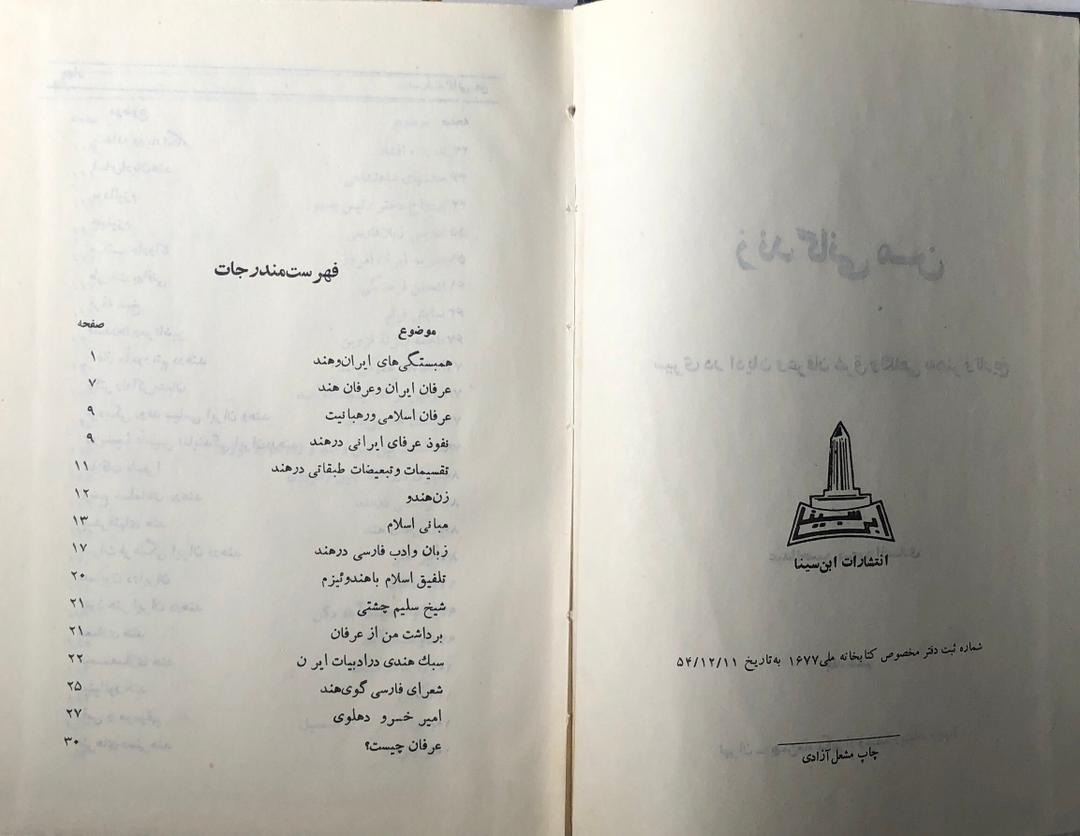 بن سینا
انتشارات ابن‌سینا
شماره ثبت دفتر مخصوص کتابخانه ملی ۱۶۷۷ به‌تاریخ ۵۴/۱۲/۱۱
چاپ مشعل آزادی
فهرست‌مندرجات
موضوع صفحه
همبستگی‌های ایران‌وهند ۱
عرفان ایران وعرفان هند ۷
عرفان اسلامی ورهبانیت ۹
نفوذ عرفای ایرانی درهند ۹
تقسیمات وتبعیضات طبقاتی درهند ۱۱
زن‌هندو ۱۲
مبانی اسلام ۱۳
زبان وادب فارسی درهند ۱۷
تلفیق اسلام باهندوئیزم ۲۰
شیخ سلیم چشتی ۲۱
برداشت من از عرفان ۲۱
سبك هندی درادبیات ایر ن ۲۲
شعرای فارسی گوی‌هند ۲۵
امیر خسرو دهلوی ۲۷
عرفان چیست؟ ۳۰